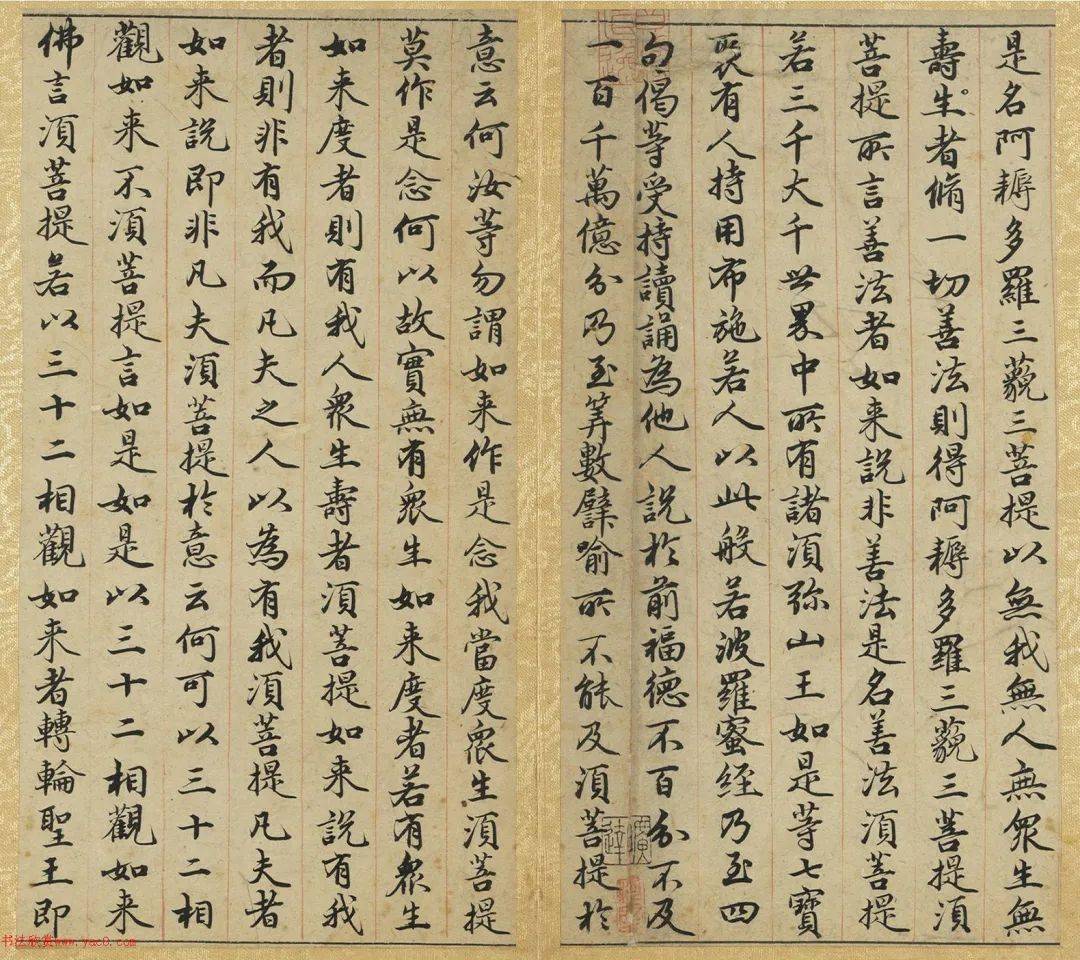 是名阿耨多羅三藐三菩提以無我無人無眾生無
壽生者脩一切善法則得阿耨多羅三藐三菩提須
菩提所言善法者如来說非善法是名善法須菩提
若三千大千世界中所有諸須弥山王如是等七寶
聚有人持用布施若人以此般若波羅蜜経乃至四
句偈等受持讀誦為他人說於前福德不百分不及
一百千萬億分乃至筭數譬喻所不能及須菩提於
意云何汝等勿謂如来作是念我當度眾生須菩提
莫作是念何以故實無有眾生如来度者若有眾生
如来度者則有我人眾生壽者須菩提如来說有我
者則非有我而凡夫之人以為有我須菩提凡夫者
如来說即非凡夫須菩提於意云何可以三十二相
觀如来不須菩提言如是如是以三十二相觀如来
佛言須菩提若以三十二相觀如来者轉輪聖王即
书法欣赏www.yac0.com